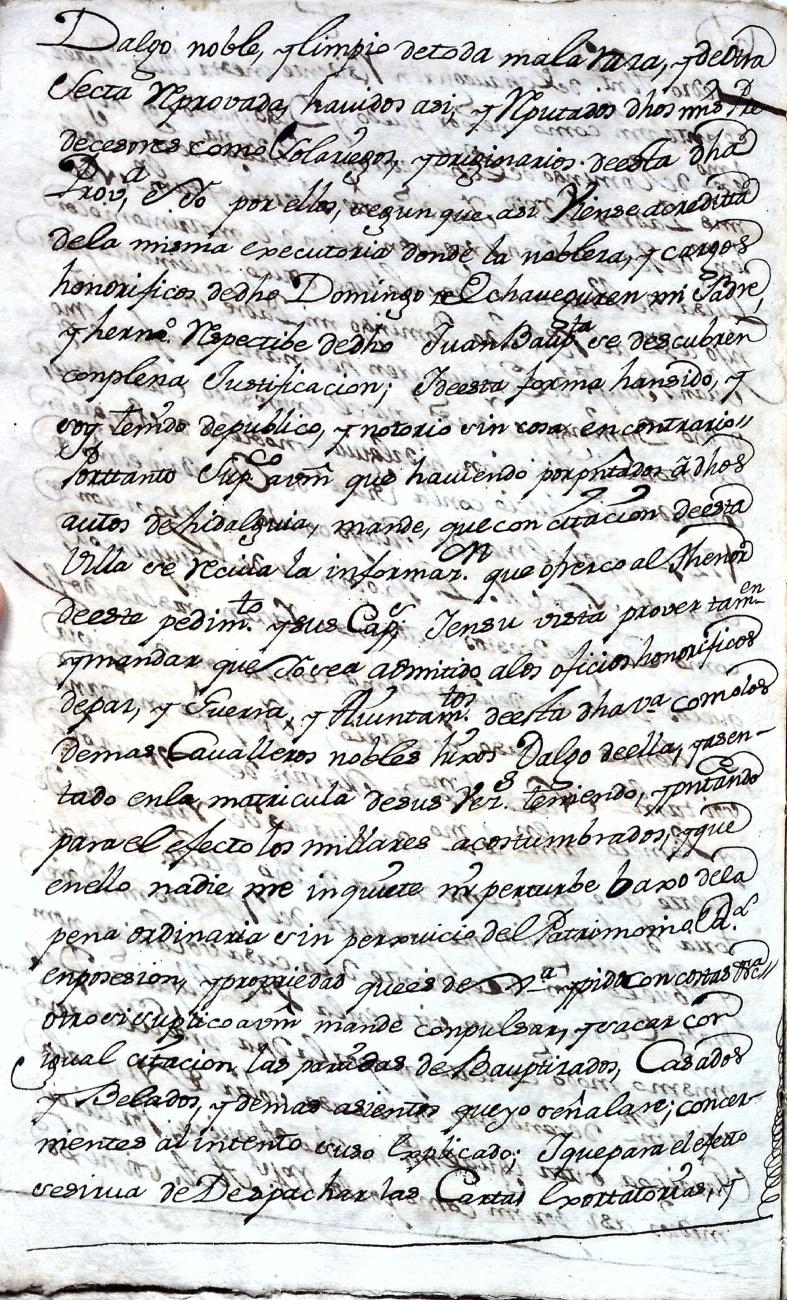 Dalgo noble, y limpio de toda mala raza, y de otra
Secta Reprovada, havidos asi, y Reputados dhos mis Pre
decesores como Solariegos, y originarios de esta dha
Prov.a, e Yo por ellos, segun que asi Viense acredita
de la misma executoria donde la nobleza, y cargos
honorificos de dho Domingo de Echaveguren mi Padre,
y herno. Respectibe de dho Juan Baup.ta se descubren
con plena Justificacion; I de esta forma han sido, y
soy tenido de publico, y notorio sin cosa en contrario//
Porttanto Sup.co a vm que haviendo por pntados a dhos
autos de hidalguia, mande, que con citacion de esta
Villa se Reciva la informaz.on que ofrezco al Thenor
de este pedim.to y sus Cap.s I en su vista prover tam-en
y mandar que Yo sea admitido a los oficios honorificos
de paz, y Guerra, y Aiuntam.tos de esta dha va como los
demas Cavalleros nobles hixos Dalgo de ella, y asen-
tado en la matricula de sus Vez.s teniendo, y pntando
para el efecto los millares acostumbrados, y que
en ello nadie me inquiete ni perturbe baxo de la
pena ordinaria sin perxuicio del Patrimonio R.l
en posesion, y propriedad que es de Jus.a y pido con costas &a//
otrosi suplico a vm mande conpulsar, y sacar con
igual citacion las partidas de Bauptizados, Casados
y Belados, y demas asientos que yo señalare; concer-
nientes al intento suso Explicado; I que para el efecto
se sirva de Despachar las Cartas Exortatorias, y